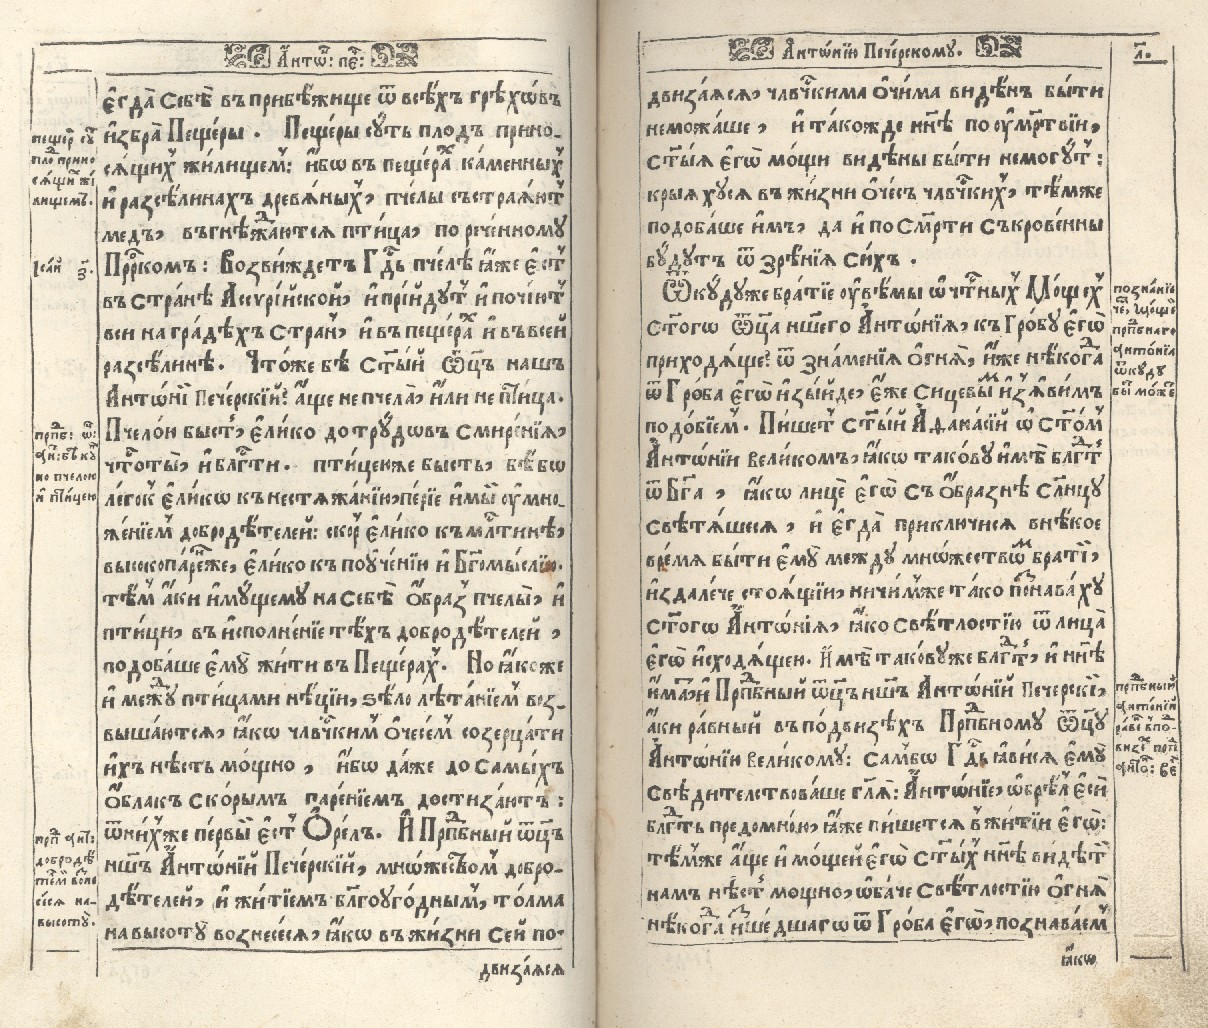 Антѡ҃: пе҃:
є҆гда̀ Себѣ̀ въ прибѣ́жище ѿ всѣ́хъ грѣ́хѡвъ
и҆збра̀ Пеще́ры . Пеще́ры су́ть плодъ прино-
сѧ́щих жилищем: и҆́бѡ въ пеще́рах ка́менных
и҆ разсѣ́линахъ древѧ́ных, пчелы състраѧ́ют
медъ, въгнѣжда́ютсѧ птица, по реченному
Прⷪ҇рком: Возвиждетъ Гдⷭ҇ь пчелѣ̀ ꙗ҆́же є҆ст
въ странѣ̀ Ассѷрі́йской, и҆ прі́йдут и҆ почі́ют
вси на гра́дѣхъ стран, и҆ въ пеще́рах и҆ въ всей
разсѣ́линѣ. Что́же бѣ̀ Ст҃ы́й Ѿц҃ъ нашъ
Анто́ній Печерскїй? а҆́ще не пчела̀, и҆лѝ не Пти́ца.
Пчело́и быст, є҆ли́ко до трꙋдо́въ смире́нїѧ,
чⷭ҇тоты̀, и҆ блгⷣти. пти́цею же бысть, бѣ̀ бо
ле́гок є҆ли́кѡ къ нестѧжа́нїю, пе́рїе и҆мы́й ᲂу҆мно-
же́нїем добродѣ́телей: скор є҆ли́ко къ млⷭ҇тинѣ,
высокопа́рен же, є҆ли́ко къ поꙋче́нїи и҆ Бг҃омы́слїю.
тѣм а҆́ки и҆мꙋ́щемꙋ на Себѣ̀ Ѻ҆́браз пчелы̀, и҆
птици, въ и҆сполне́нїе тѣ́хъ добродѣ́телей ,
подоба́ше є҆мꙋ̀ жи́ти въ Пеще́рах. Но ꙗ҆́коже
и҆ между птицами нѣ́цїи, ѕѣло̀ лѣта́нїем воз-
выша́ютсѧ, ꙗ҆́кѡ члвч҃ким Ѻ҆чесе́м созерца́ти
и҆́хъ нѣ́сть мо́щно , и҆́бѡ да́же до Самы́хъ
Ѻ҆́блакъ Ско́рымъ паре́нїемъ достиза́ютъ :
ѿ ни́хже первы́й є҆ст Ѻ҆ре́лъ. И҆ Прпⷣбный Ѿц҃ъ
нш҃ъ Анто́нїй Пече́рскїй, мно́жеством добро-
дѣ́телей, и҆ жи́тїемъ бл҃гоꙋго́дным, то́лма
на высотꙋ̀ вознесе́сѧ, ꙗ҆́кѡ въ жи́зни Сей по-
двиза́ѧсѧ
пещер сꙋ
пло прино
сѧ́щих жи
лищем.
Ісаи з҃.
прпⷣб: ѡ҃:
и пчелою
и҆ пти́цею
добродѣ
сѧ на
высотꙋ̀.
Анто́нїю Пече́рскому.
л҃.
двиза́ѧсѧ, члвч҃кима Ѻ҆чи́ма ви́дѣнъ бы́ти
немо́жаше, и҆ та́кожде нн҃ѣ по ᲂу҆ме́ртвїи,
Ст҃ы́ѧ є҆гѡ̀ мо́щи ви́дѣны бы́ти не мо́гꙋт :
кры́ѧ хꙋсѧ въ жи́зни Ѻ҆че́съ члвч҃ких, тѣ́мже
подоба́ше и҆̀м, да и҆ по См҃рти Съкрове́нны
бꙋ́дꙋтъ ѿ зрѣ́нїѧ Си́хъ .
Ѿкꙋ́дꙋже бра́тїе ᲂу҆вѣ́мы ѡ҆ чтⷭ҇ных Моще́х
Ст҃о́гѡ Ѿц҃а нш҃его Анто́нїѧ, къ Гро́бꙋ є҆гѡ̀
приходѧ́ще? ѿ зна́менїѧ Ѻ҆гнѧ̀, и҆́же нѣ́когда
ѿ Гро́ба є҆гѡ̀ и҆зы́йде, є҆́же Сицевы́м и҆з̾ѧви́мъ
подо́бїем. Пи́шет Ст҃ы́й Аѳана́сїй ѡ҆ Ст҃о́м
Анто́нїи вели́комъ, ꙗ҆́кѡ такову и҆мѣ̀ блгⷣт
ѿ Бг҃а , ꙗ҆́кѡ лицѐ є҆гѡ̀ Съѻ҆бра́знѣ Сл҃нцу
Свѣтѧ́шесѧ, и҆ є҆гда̀ приключи́сѧ в нѣ́кое
вре́мѧ бы́ти є҆мꙋ̀ междꙋ мно́жествѡм бра́тїй,
и҆здале́че стоѧ́щїи, ничи́мже та́ко познава́хꙋ
Ст҃о́гѡ Анто́нїѧ, ꙗ҆́ко свѣ́тлостїю ѿ лица̀
є҆гѡ̀ и҆сходѧ́щеи. И҆мѣ̀ такову же блгⷣт, и҆ нн҃ѣ
и҆́мат и҆ Прпⷣбный Ѿц҃ъ нш҃ъ Анто́нїй Пече́рскїй,
а҆́ки ра́вный въ по́двизѣхъ Прпⷣбному Ѿц҃ꙋ
Анто́нїи Вели́комꙋ: Сам бо Гдⷭ҇ь ꙗ҆ви́сѧ є҆мꙋ̀
Свѣ́дителствоваше гл҃ѧ: Анто́нїе, ѡ҆брѣ́л є҆сѝ
блгⷣть предо мно́ю, ꙗ҆́же пи́шетсѧ в жи́тїи є҆гѡ̀:
тѣ́мже а҆́ще и҆ моще́й є҆гѡ̀ Ст҃ы́х нн҃ѣ ви́дѣт
намъ нѣ́ст мо́щно, ѻ҆ба́че Свѣ́тлостїю Ѻ҆гнѧ̀
нѣ́когда и҆зше́дшагѡ ѿ Гро́ба є҆гѡ̀, познава́ем
ꙗ҆́кѡ
позна́нїе
прпⷣбнаго
Анто́нїѧ
ѿкꙋдꙋ
бы́ може
прпⷣбный
Анто́нїй